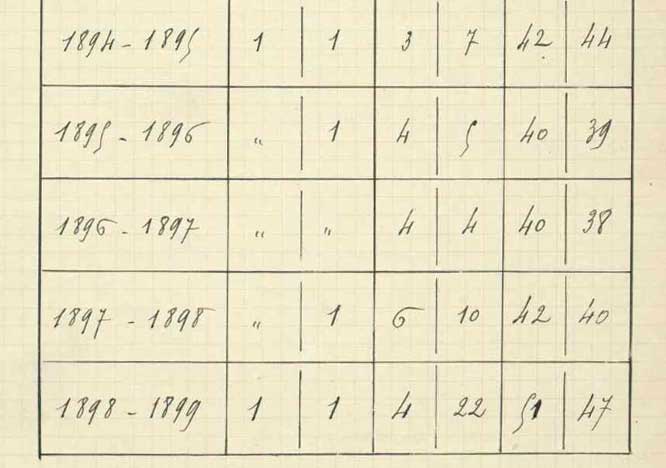 1894 - 1895 1 1 3 7 42 44
1895 - 1896 " 1 4 5 40 39
1896 - 1897 " " 4 4 40 38
1897 - 1898 " 1 6 10 42 40
1898 - 1899 1 1 4 22 51 47